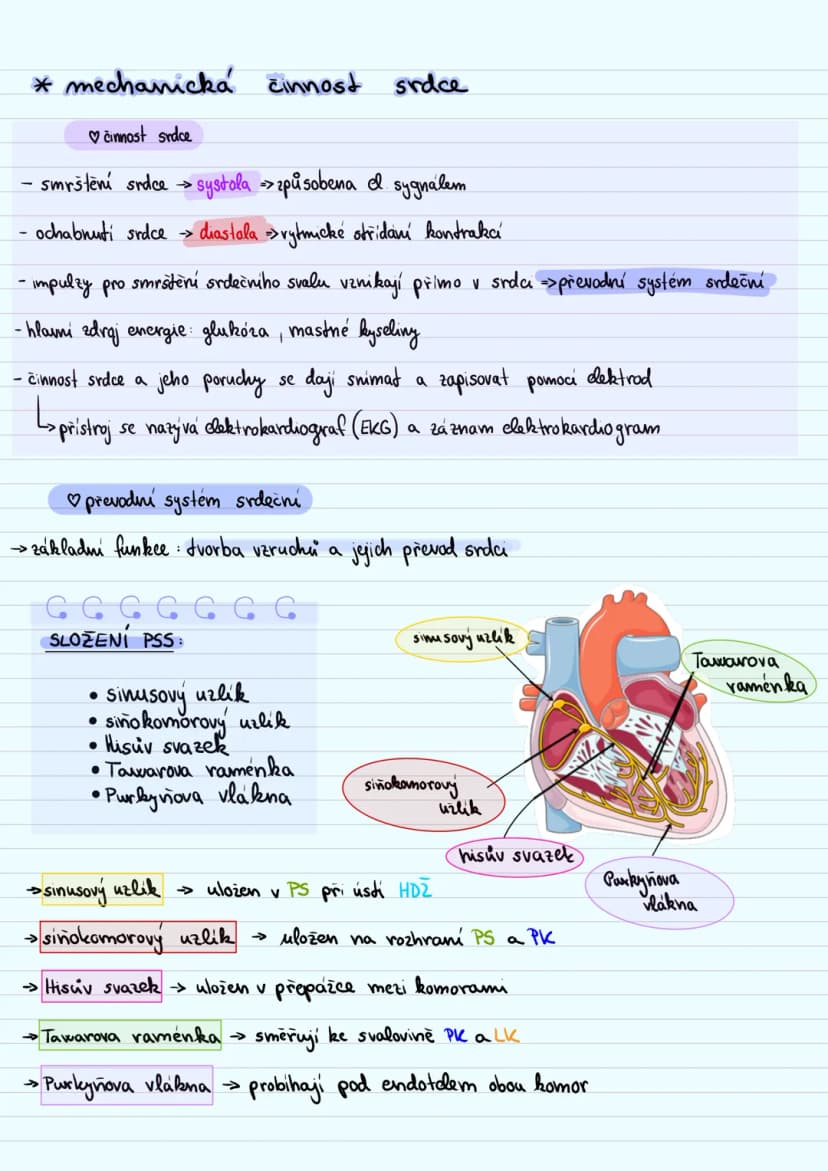 * mechanická činnost srdce
♡ činnost srdce
- smrštění srdce → systola => způsobena el. sygnálem
- ochabnutí srdce → diastola => rytmické střídání kontrakcí
- impulzy pro smrštění srdečního svalu vznikají přímo v srdci => převodní systém srdeční
- hlavní zdroj energie: glukóza, mastné kyseliny
- činnost srdce a jeho poruchy se dají snímat a zapisovat pomocí elektrod
↳ přístroj se nazývá elektrokardiograf (EKG) a záznam elektrokardiogram
♡ převodní systém srdeční
→ základní funkce : tvorba vzruchů a jejich převod srdcí
SLOŽENÍ PSS:
• sinusový uzlík
• síňokomorový uzlík
• Hisův svazek
• Tawarova raménka
• Purkyňova vlákna
sinusový uzlík
Tawarova
raménka
síňokomorový
uzlík
hisův svazek
Purkyňova
vlákna
→ sinusový uzlík → uložen v PS při ústí HDŽ
→ síňokomorový uzlík → uložen na rozhraní PS a PK
→ Hisův svazek → uložen v přepážce mezi komorami
→ Tawarova raménka → směřují ke svalovině PK a LK
→ Purkyňova vlákna → probíhají pod endotelem obou komor